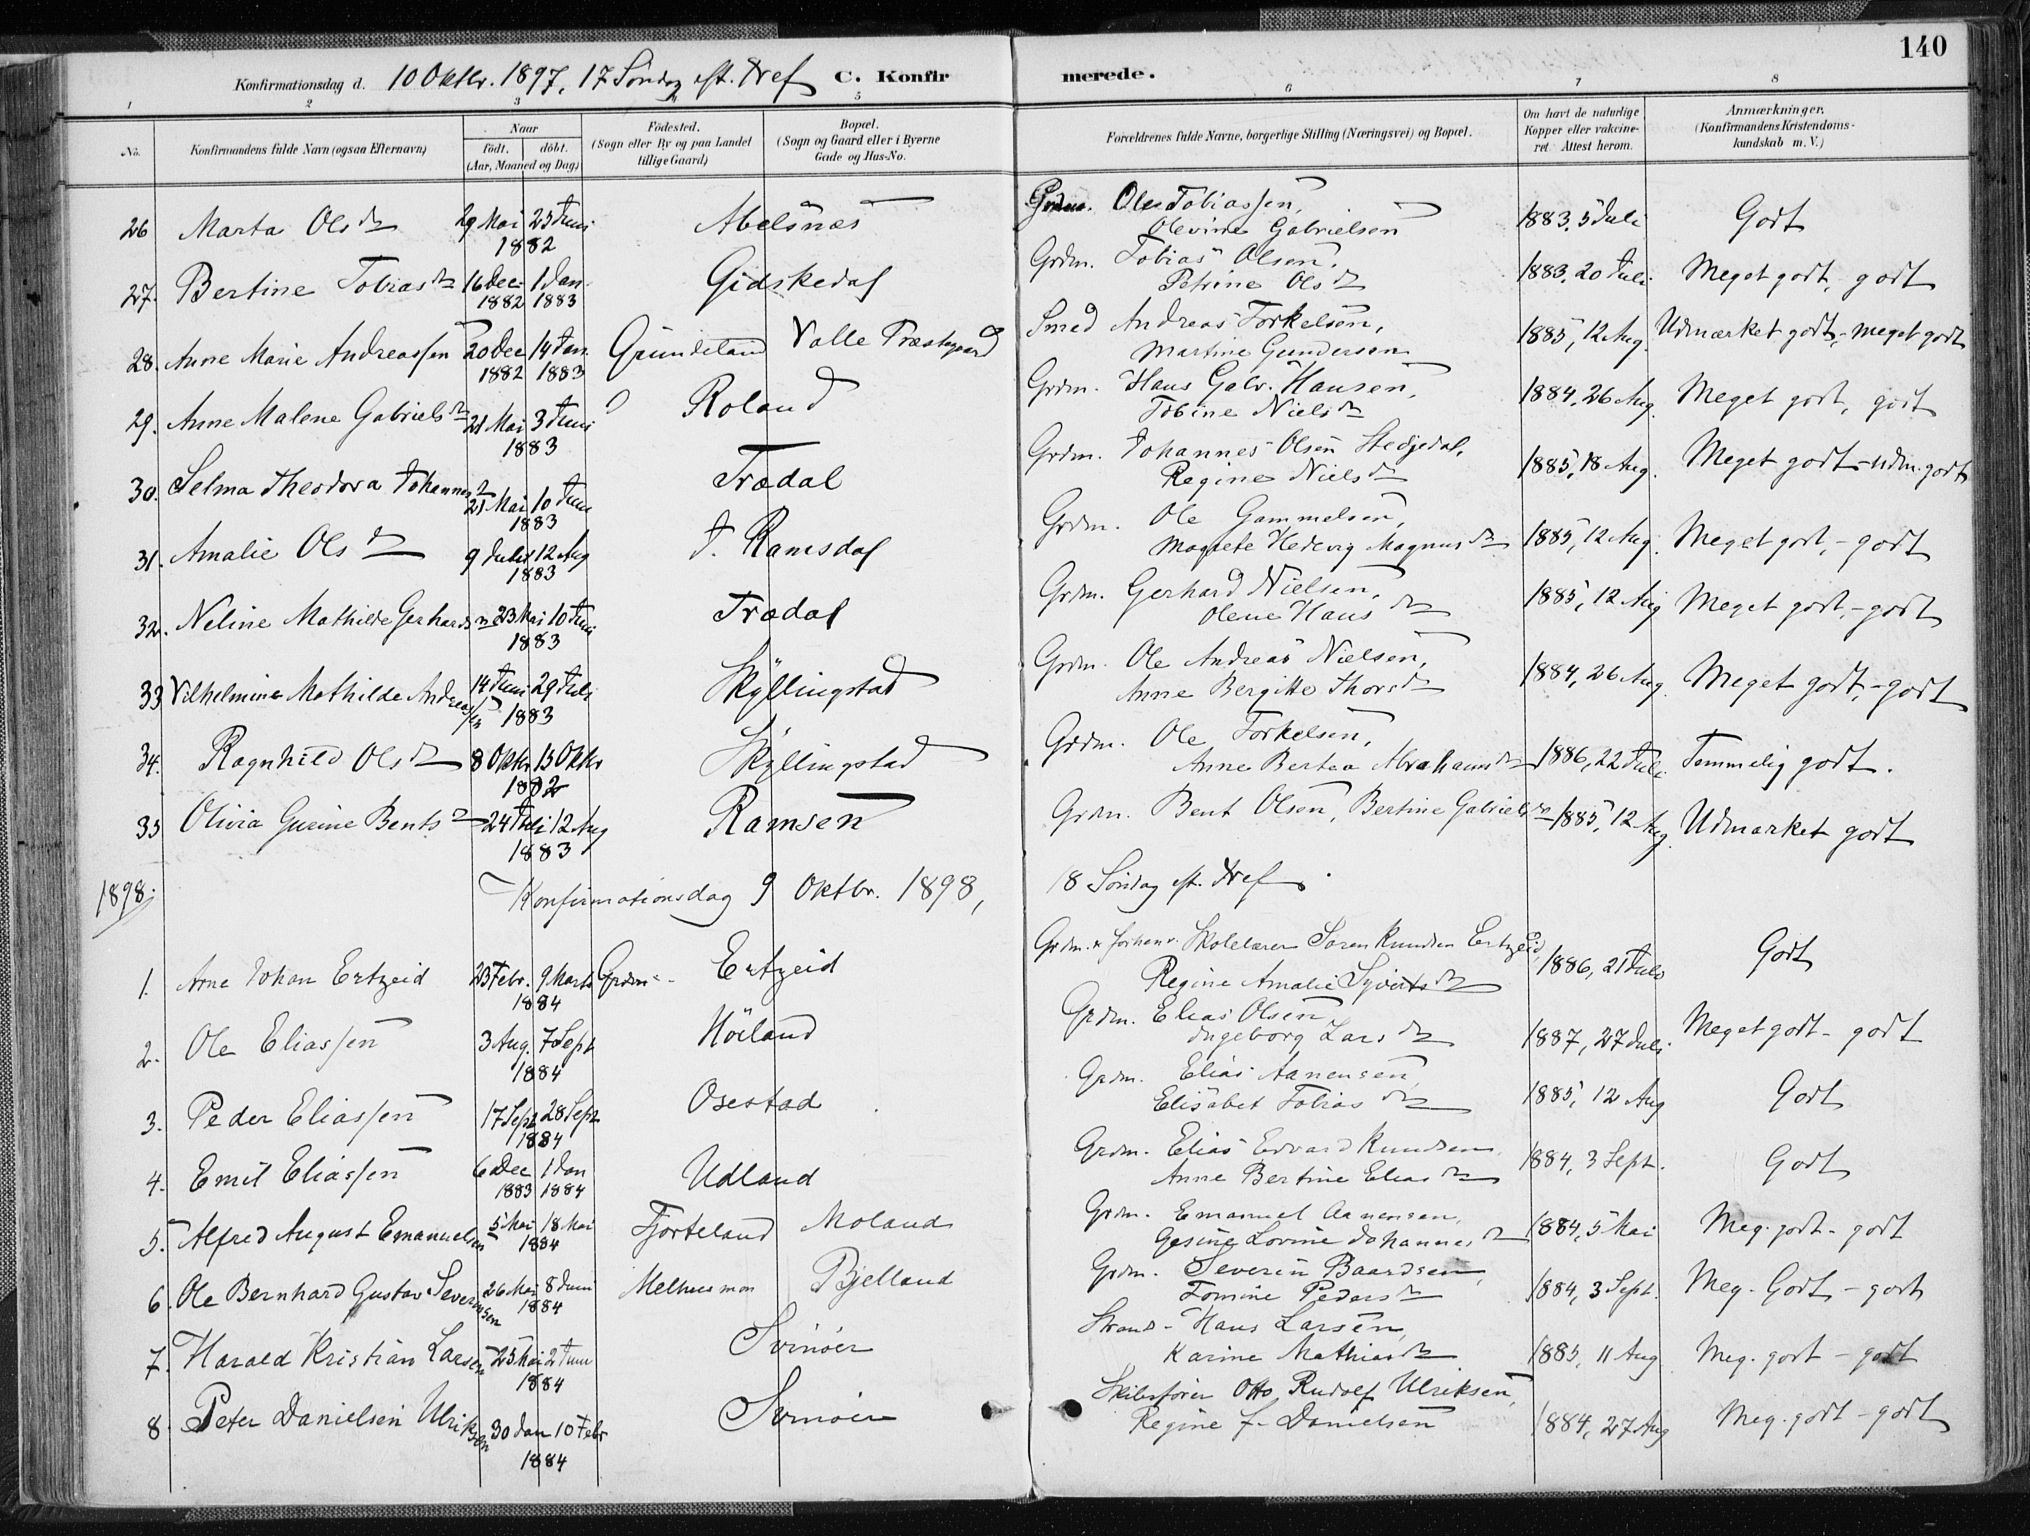 140
Konfirmationsdag d. 10 Oktbr. 1897, 17 Søndag eft. Tref C. Konfirmerede.
1 2 3 5 6 7 8
No. Konfirmandens fulde Navn (ogsaa Efternavn) Naar født. døbt. (Aar, Maaned og Dag) Fødested. (Sogn eller By og paa Landet tillige Gaard) Bopæl. (Sogn og Gaard eller i Byerne Gade og Hus-No. Forældrenes fulde Navne, borgerlige Stilling (Næringsvei) og Bopæl. Om havt de naturlige Kopper eller vakcineret. Attest herom. Anmærkninger. (Konfirmandens Kristendomskundskab m. V.)
26 Marta Olsdr 29 Mai 25 Juni 1882 Abelsnæs Grdm. Ole Tobiassen, Olevine Gabrielsen 1883, 5 Juli Godt
27. Bertine Tobiasdr 16 Dec 1882 1 Jan. 1883 Gidskedal Grdm. Tobias Olsen, Petrine Olsdr 1883, 20 Juli Meget godt, godt
28. Anne Marie Andreassen 20 Dec 1882 14 Jan. 1883 Grundeland Valle Præstegaard Smed Andreas Torkelsen, Martine Gundersen 1885, 12 Aug. Udmærket godt, - meget godt
29. Anne Malene Gabrielsdr 21 Mai 3 Juni 1883 Roland Grdm. Hans Gabr. Hansen, Tobine Nielsdr 1884, 26 Aug. Meget godt, godt
30. Selma Theodora Johannesdr 21 Mai 10 Juni 1883 Trædal Grdm. Johannes Olsen Stedjedal, Regine Nielsdr 1885, 18 Aug. Meget godt - udm. godt
31. Amalie Olsdr 9 Juli 12 Aug 1883 J. Ramsdal Grdm. Ole Gammelsen, Magrete Hedevig Magnusdr 1885, 12 Aug. Meget godt, - godt
32. Neline Mathilde Gerhardsdr 23 Mai 10 Juni 1883 Trædal Grdm. Gerhard Nielsen, Olene Hansdr 1885, 12 Aug Meget godt, - godt
33 Vilhelmine Mathilde Andreassen 14 Juni 29 Juli 1883 Skyllingstad Grdm. Ole Andreas Nielsen, Anne Bergitte Thorsdr 1884, 26 Aug. Meget godt, - godt
34. Ragnhild Olsdr 8 Oktbr 15 Oktbr 1882 Skyllingstad Grdm. Ole Torkelsen, Anne Bertea Abrahamsdr 1886, 22 Juli Temmelig godt.
35 Olivia Gurine Bentsdr 24 Juli 12 Aug 1883 Ramsen Grdm. Bent Olsen, Bertine Gabrielsdr 1885, 12 Aug. Udmærket godt
1898. Konfirmationsdag 9 Oktbr. 1898, 18 Søndag eft. Tref.
1. Arne Johan Ertzeid 23 Febr. 9 Marts 1884 Ertzeid Grdm. & forhenv. Skolelærer Søren Knudsen Ertzeid, Regine Amalie Syvertsdr 1886, 21 Juli Godt
2. Ole Eliassen 3 Aug. 7 Sept 1884 Höiland Grdm. Elias Olsen Ingeborg Larsdr 1887, 27 Juli Meget godt - godt
3. Peder Eliassen 17 Sept 28 Sept 1884 Osestad Grdm. Elias Aanensen, Elisabet Tobiasdr 1885, 12 Aug Godt
4. Emil Eliassen 6 Dec 1883 1 Jan 1884 Udland Grdm. Elias Edvard Knudsen, Anne Bertine Eliasdr 1884, 3 Sept. Godt
5. Alfred August Emanuelsen 5 Mai 18 Mai 1884 Fjorteland Moland Grdm. Emanuel Aanensen, Gesine Lovine Johannesdr 1884, 5 Mai Meg. godt - godt
6. Ole Bernhard Gustav Severinsen 26 Mai 8 Juni 1884 Melhusmon Bjelland Grdm. Severin Baardsen, Tomine Pedersdr 1884, 3 Sept. Meg. Godt - godt
7. Harald Kristian Larsen 25 Mai 2 Juni 1884 Svinöer Strand- Hans Larsen, Karine Mathiasdr 1885, 11 Aug Meg. godt - godt
8. Peter Danielsen Ulriksen 30 Jan 10 Febr 1884 Svinöer Skibsfører Otto Rudolf Ulriksen, Regine f. Danielsen 1884, 27 Aug Meg. godt - godt